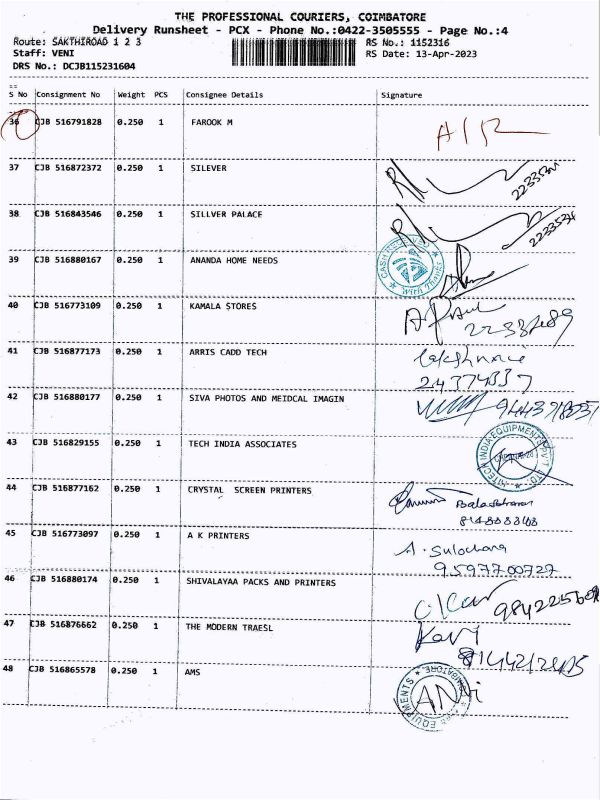 THE PROFESSIONAL COURIERS, COIMBATORE
Delivery Runsheet - PCX - Phone No.:0422-3505555 - Page No.:4
Route: SAKTHIROAD 1 2 3 RS No.: 1152316
Staff: VENI RS Date: 13-Apr-2023
DRS No.: DCJB115231604
S No Consignment No Weight PCS Consignee Details Signature
36 CJB 516791828 0.250 1 FAROOK M
37 CJB 516872372 0.250 1 SILEVER
38 CJB 516843546 0.250 1 SILLVER PALACE
39 CJB 516880167 0.250 1 ANANDA HOME NEEDS
CASH RECEIVED With Thanks
40 CJB 516773109 0.250 1 KAMALA STORES
41 CJB 516877173 0.250 1 ARRIS CADD TECH
24374337
42 CJB 516880177 0.250 1 SIVA PHOTOS AND MEIDCAL IMAGIN
43 CJB 516829155 0.250 1 TECH INDIA ASSOCIATES
44 CJB 516877162 0.250 1 CRYSTAL SCREEN PRINTERS
45 CJB 516773097 0.250 1 A K PRINTERS A. Sulochana
9597700727
46 CJB 516880174 0.250 1 SHIVALAYAA PACKS AND PRINTERS
47 CJB 516876662 0.250 1 THE MODERN TRAESL Kavi
48 CJB 516865578 0.250 1 AMS
EQUIPMENTS